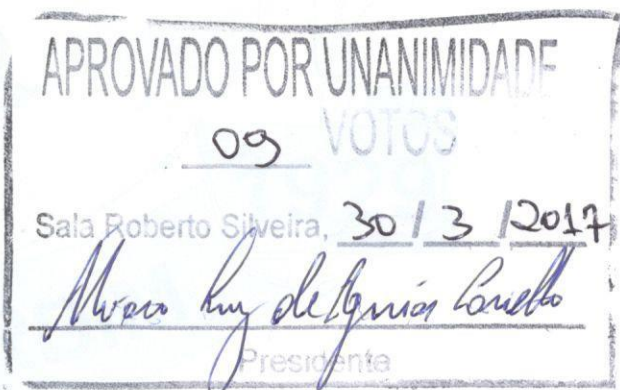 APROVADO POR UNANIMIDADE
09 VOTOS
Sala Roberto Silveira, 30 / 3 / 2017
de
Presidente